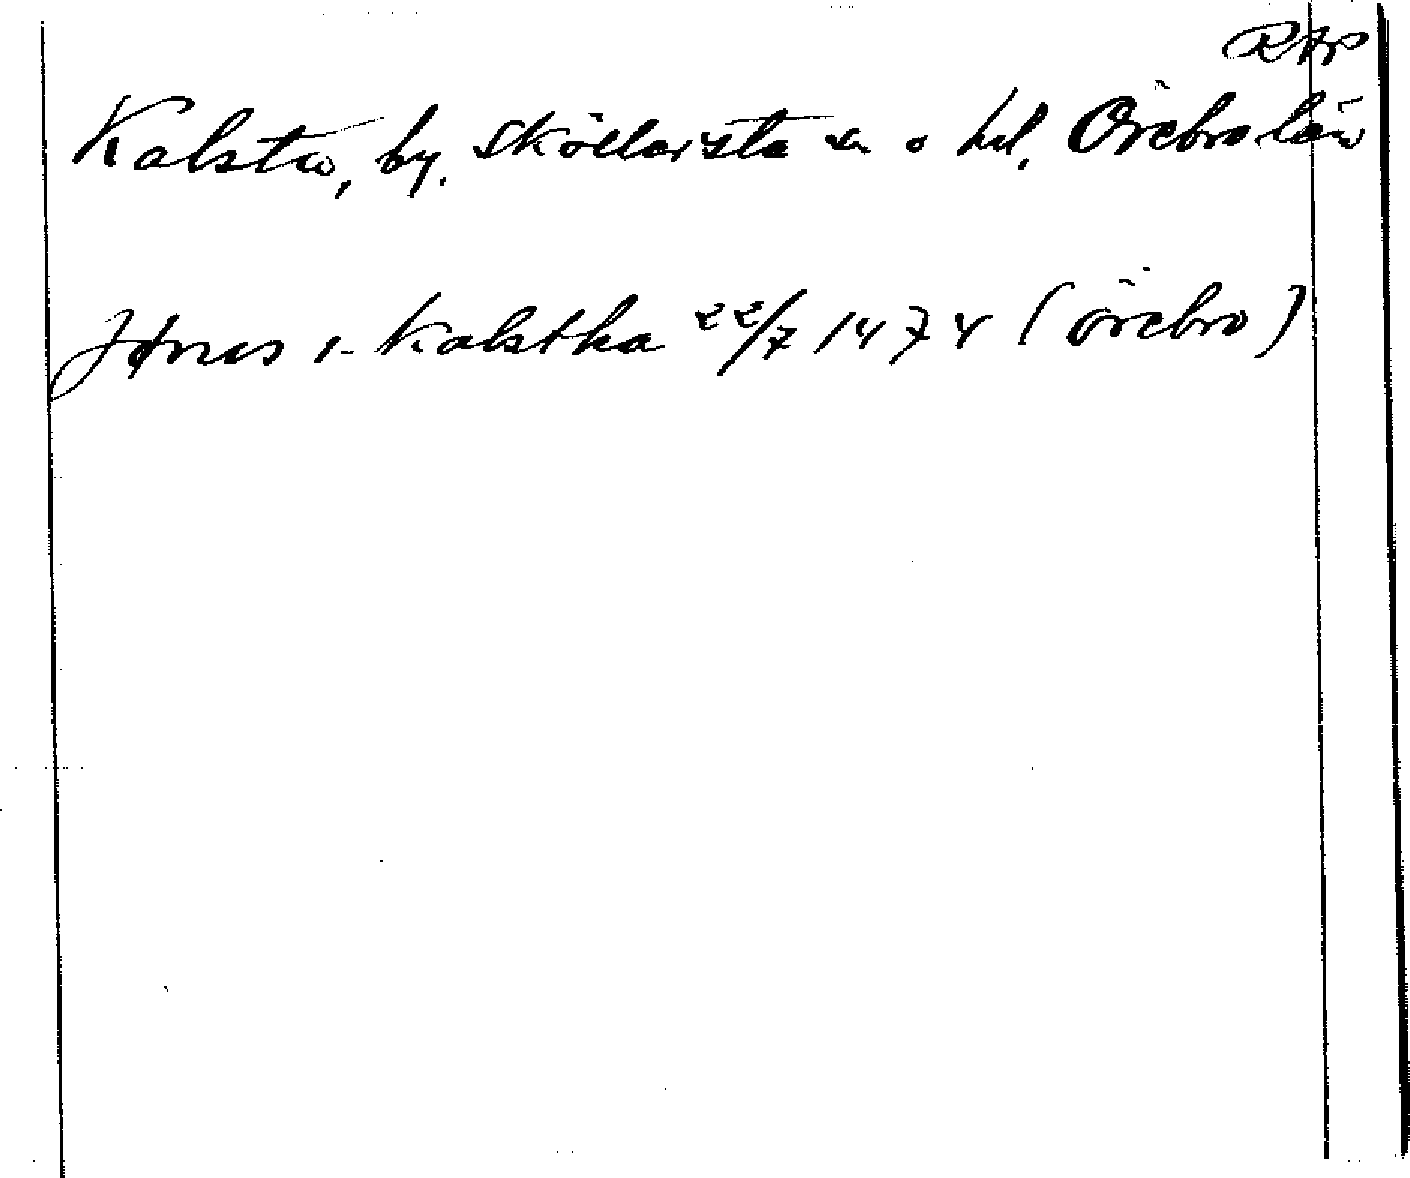 RAp
Kalsta, by. Sköllersta sn o hd. Örebro län
Jönes i Kalstha 22/7 1474 (Örebro)